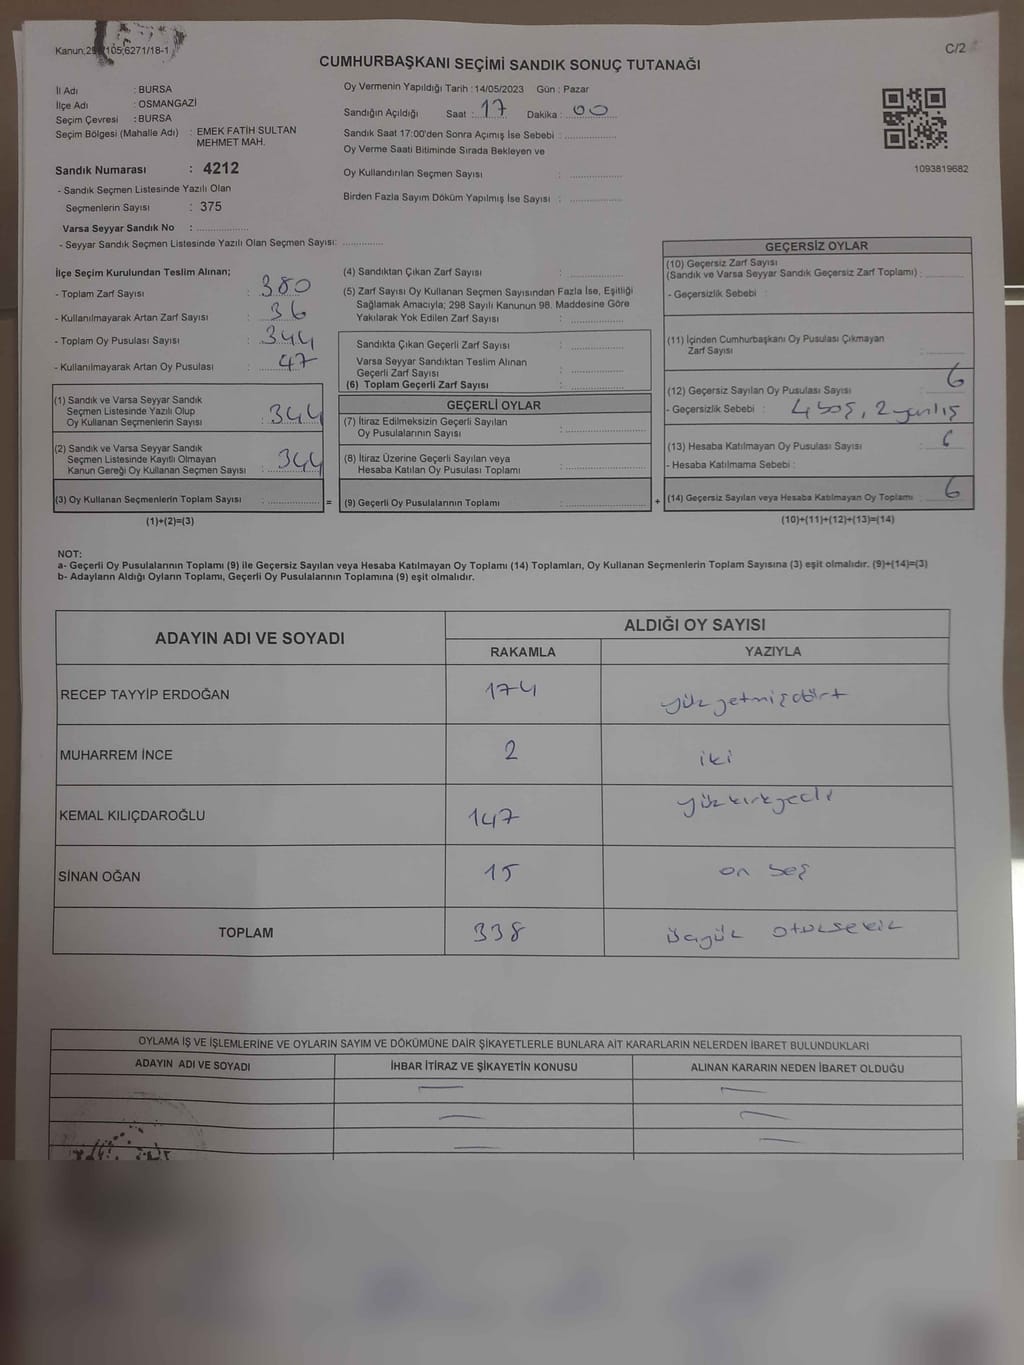 Kanun;29 105;6271/18-1
C/2
CUMHURBAŞKANI SEÇİMİ SANDIK SONUÇ TUTANAĞI
İl Adı : BURSA
İlçe Adı : OSMANGAZİ
Seçim Çevresi : BURSA
Seçim Bölgesi (Mahalle Adı) : EMEK FATİH SULTAN
MEHMET MAH.
Sandık Numarası : 4212
- Sandık Seçmen Listesinde Yazılı Olan
Seçmenlerin Sayısı : 375
Varsa Seyyar Sandık No : ................
- Seyyar Sandık Seçmen Listesinde Yazılı Olan Seçmen Sayısı: .............
Oy Vermenin Yapıldığı Tarih : 14/05/2023 Gün : Pazar
Sandığın Açıldığı Saat : 17 Dakika : 00
Sandık Saat 17:00'den Sonra Açımış İse Sebebi : ................
Oy Verme Saati Bitiminde Sırada Bekleyen ve
Oy Kullandırılan Seçmen Sayısı : ................
Birden Fazla Sayım Döküm Yapılmış İse Sayısı : ................
1093819682
İlçe Seçim Kurulundan Teslim Alınan;
- Toplam Zarf Sayısı : 380
- Kullanılmayarak Artan Zarf Sayısı : 36
- Toplam Oy Pusulası Sayısı : 344
- Kullanılmayarak Artan Oy Pusulası : 47
(1) Sandık ve Varsa Seyyar Sandık
Seçmen Listesinde Yazılı Olup
Oy Kullanan Seçmenlerin Sayısı : 344
(2) Sandık ve Varsa Seyyar Sandık
Seçmen Listesinde Kayıtlı Olmayan
Kanun Gereği Oy Kullanan Seçmen Sayısı : 344
(3) Oy Kullanan Seçmenlerin Toplam Sayısı : ................ =
(1)+(2)=(3)
(4) Sandıktan Çıkan Zarf Sayısı : ................
(5) Zarf Sayısı Oy Kullanan Seçmen Sayısından Fazla İse, Eşitliği
Sağlamak Amacıyla; 298 Sayılı Kanunun 98. Maddesine Göre
Yakılarak Yok Edilen Zarf Sayısı : ................
Sandıkta Çıkan Geçerli Zarf Sayısı : ................
Varsa Seyyar Sandıktan Teslim Alınan
Geçerli Zarf Sayısı : ................
(6) Toplam Geçerli Zarf Sayısı : ................
GEÇERLİ OYLAR
(7) İtiraz Edilmeksizin Geçerli Sayılan
Oy Pusulalarının Sayısı : ................
(8) İtiraz Üzerine Geçerli Sayılan veya
Hesaba Katılan Oy Pusulası Toplamı : ................
(9) Geçerli Oy Pusulalarının Toplamı : ................ +
GEÇERSİZ OYLAR
(10) Geçersiz Zarf Sayısı
(Sandık ve Varsa Seyyar Sandık Geçersiz Zarf Toplamı) : ............
- Geçersizlik Sebebi :
(11) İçinden Cumhurbaşkanı Oy Pusulası Çıkmayan
Zarf Sayısı : ............
(12) Geçersiz Sayılan Oy Pusulası Sayısı : 6
- Geçersizlik Sebebi : 4 boş, 2 yanlış
(13) Hesaba Katılmayan Oy Pusulası Sayısı :
- Hesaba Katılmama Sebebi :
(14) Geçersiz Sayılan veya Hesaba Katılmayan Oy Toplamı : 6
(10)+(11)+(12)+(13)=(14)
NOT:
a- Geçerli Oy Pusulalarının Toplamı (9) ile Geçersiz Sayılan veya Hesaba Katılmayan Oy Toplamı (14) Toplamları, Oy Kullanan Seçmenlerin Toplam Sayısına (3) eşit olmalıdır. (9)+(14)=(3)
b- Adayların Aldığı Oyların Toplamı, Geçerli Oy Pusulalarının Toplamına (9) eşit olmalıdır.
ADAYIN ADI VE SOYADI
ALDIĞI OY SAYISI
RAKAMLA YAZIYLA
RECEP TAYYİP ERDOĞAN 174 yüz yetmişdört
MUHARREM İNCE 2 iki
KEMAL KILIÇDAROĞLU 147 yüz kırk yedi
SİNAN OĞAN 15 on beş
TOPLAM 338 üçyüz otuzsekiz
OYLAMA İŞ VE İŞLEMLERİNE VE OYLARIN SAYIM VE DÖKÜMÜNE DAİR ŞİKAYETLERLE BUNLARA AİT KARARLARIN NELERDEN İBARET BULUNDUKLARI
ADAYIN ADI VE SOYADI İHBAR İTİRAZ VE ŞİKAYETİN KONUSU ALINAN KARARIN NEDEN İBARET OLDUĞU